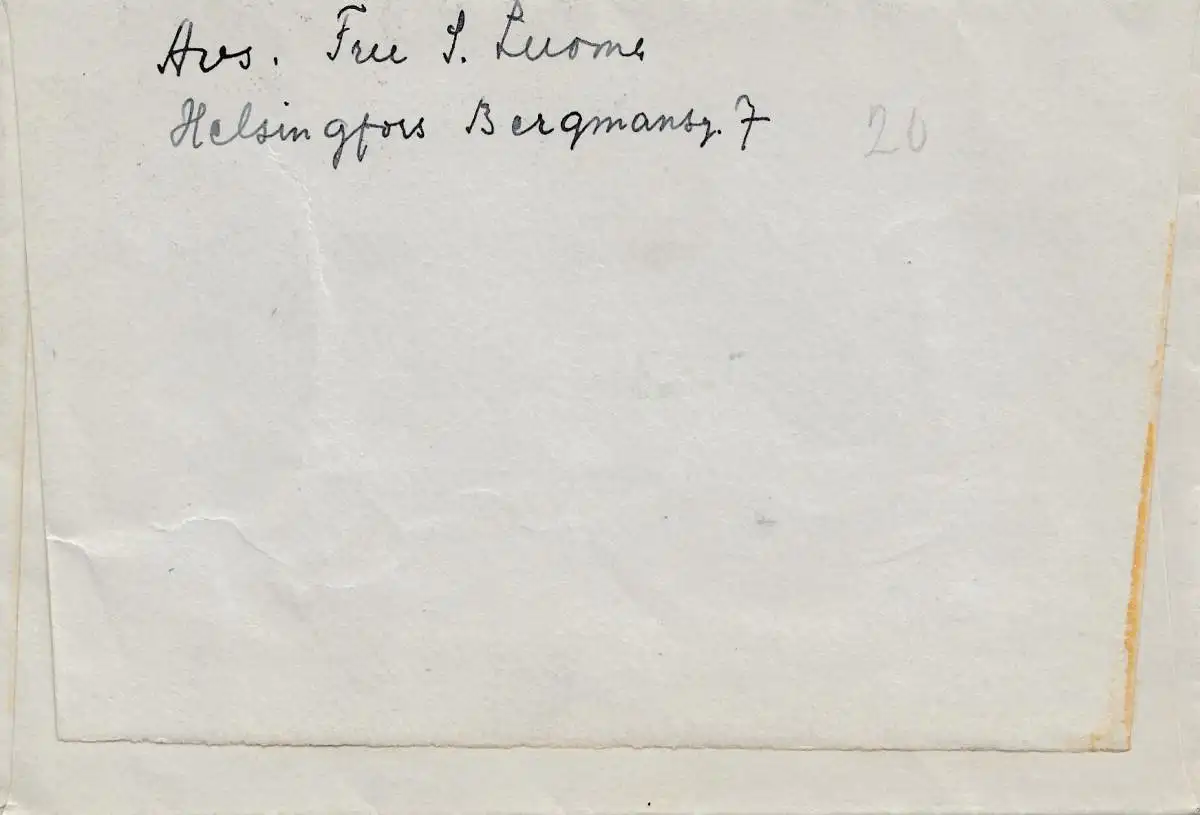 Avs. Fru S. Luoma
Helsingfors Bergmansg. 7
20